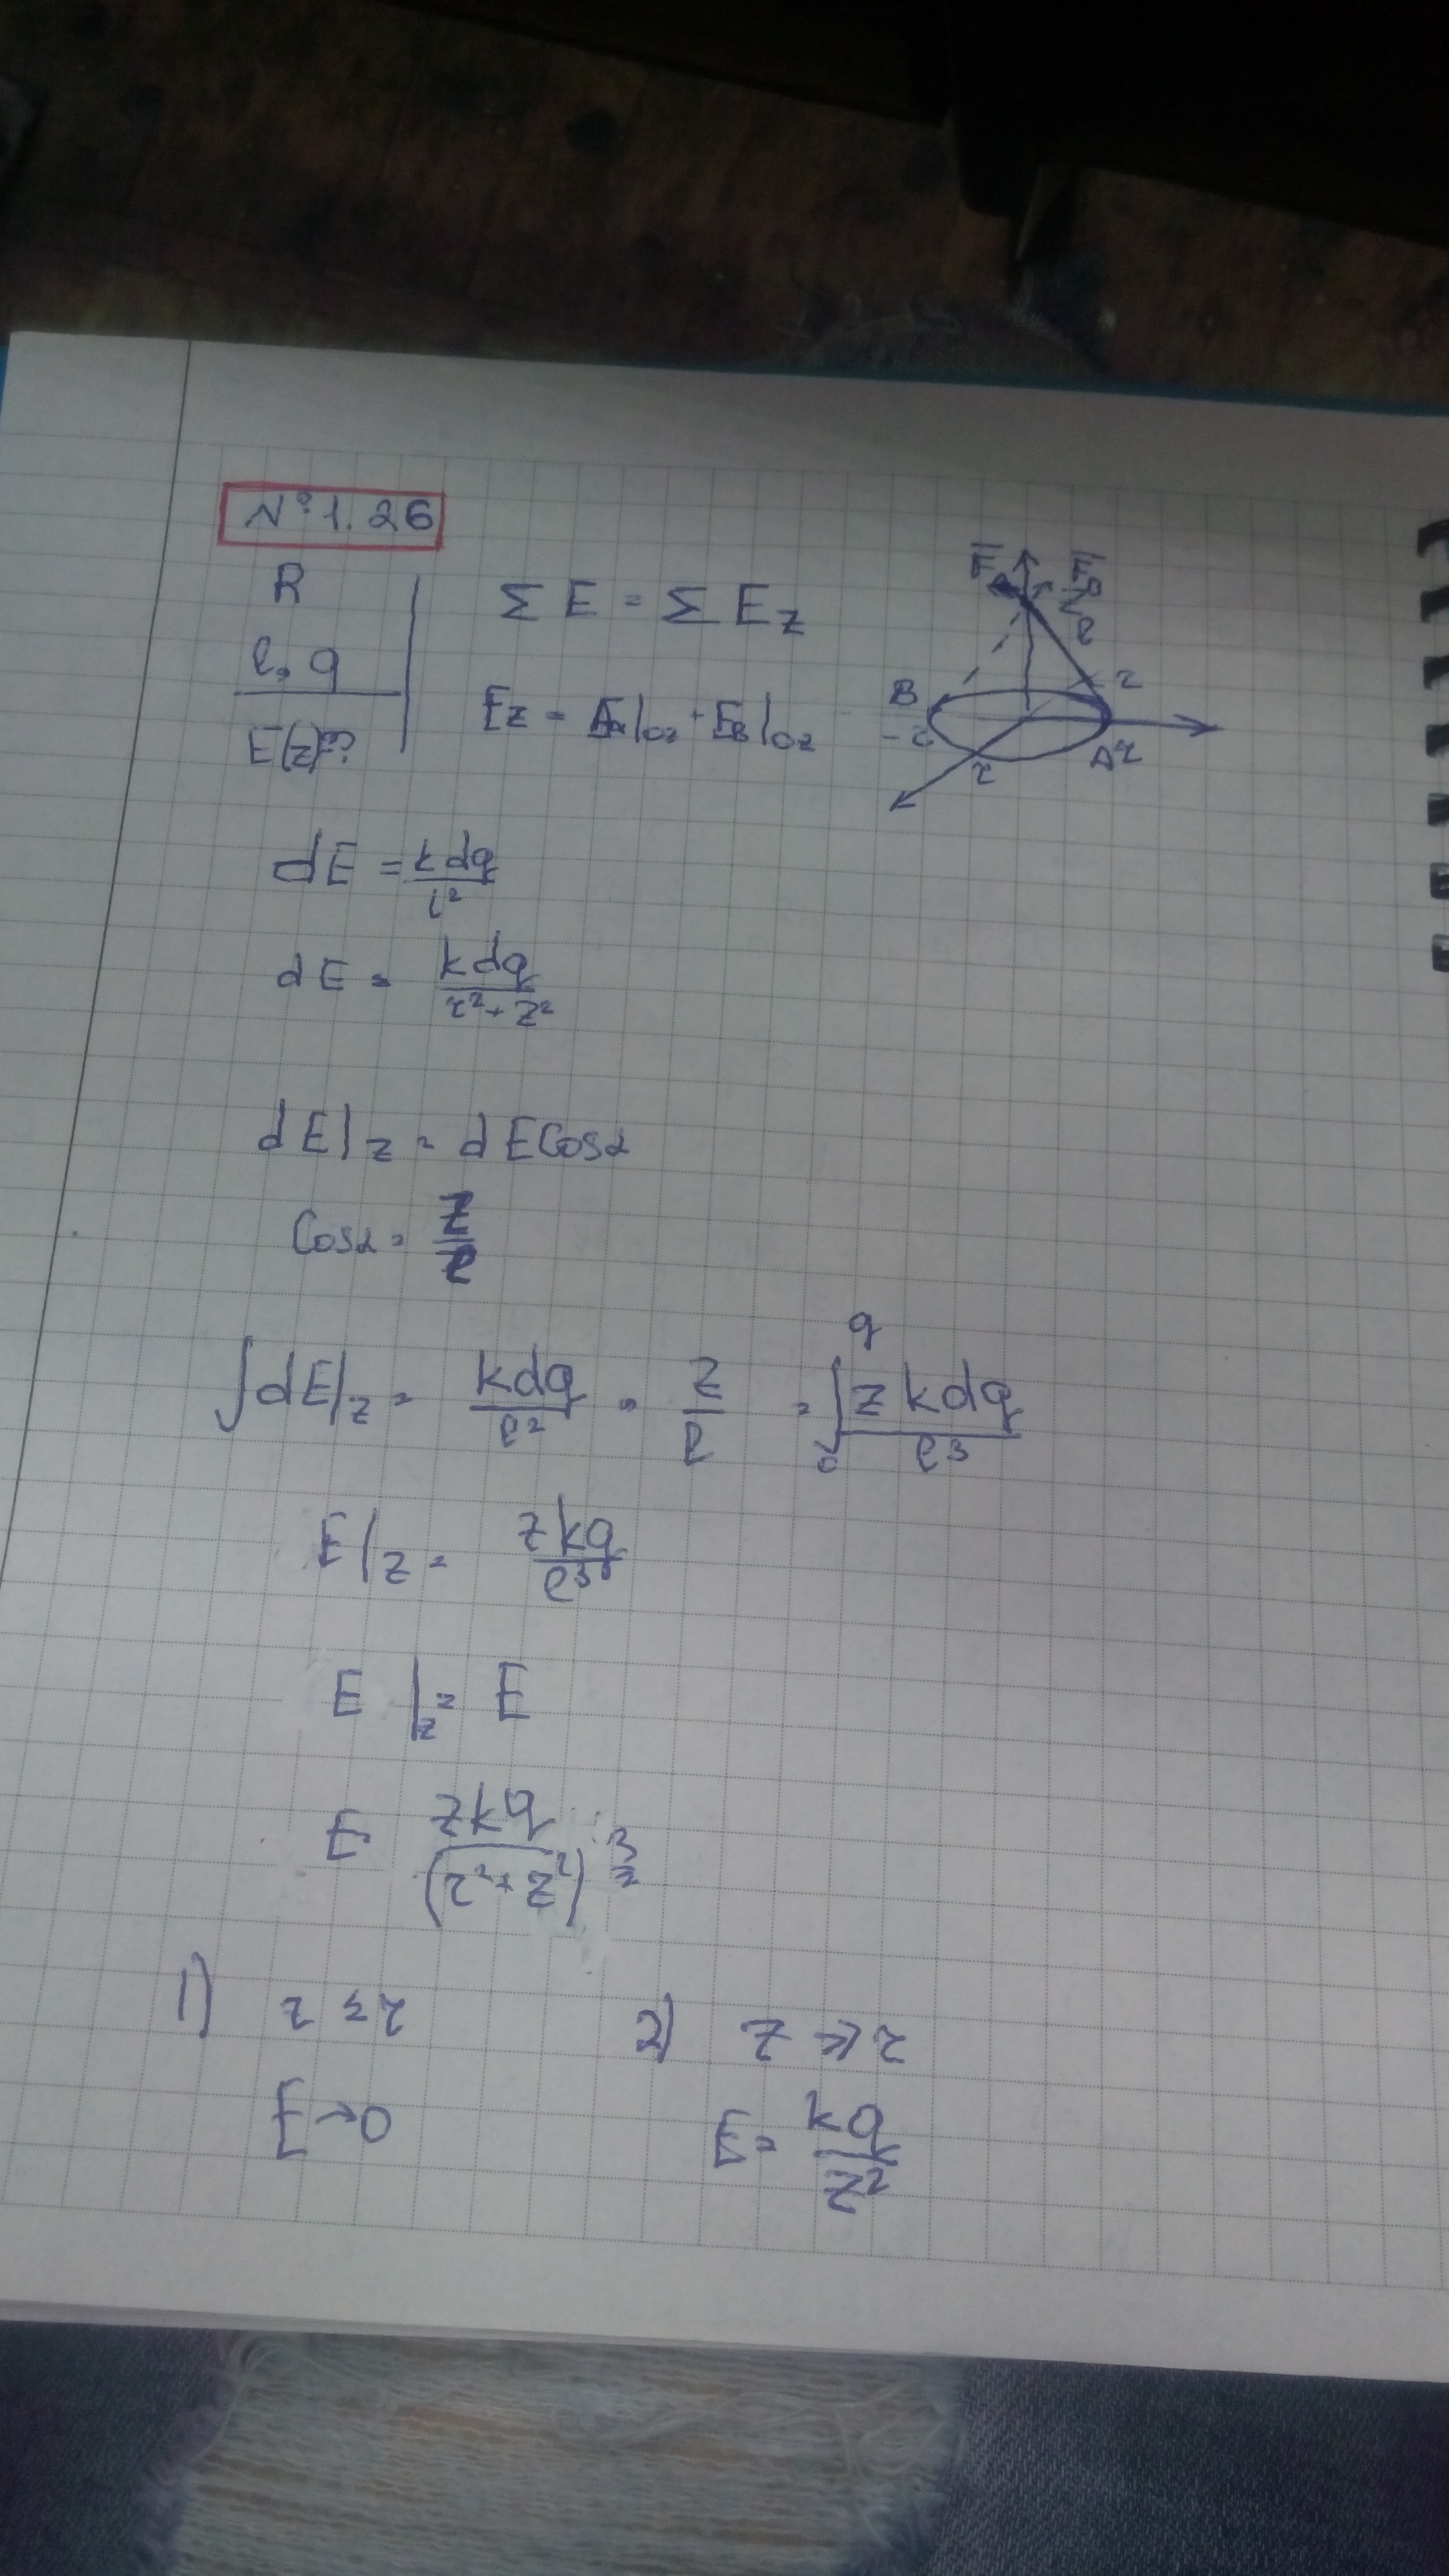 N°1.26
R
l, q
E(z)-?
Σ E = Σ E_z
E_z = E_A|_{oz} + E_B|_{oz}
B
-r
r
l
r
A r
dE = \frac{k dq}{l^2}
dE = \frac{k dq}{r^2 + z^2}
dE|_z = dE cos α
cos α = \frac{z}{l}
∫dE|_z = \frac{k dq}{l^2} · \frac{z}{l} = ∫_0^q \frac{z k dq}{l^3}
E|_z = \frac{z k q}{l^3}
E|_z = E
E \frac{z k q}{(r^2 + z^2)^{\frac{3}{2}}}
1) z ≤ r
E → 0
2) z ≫ r
E = \frac{k q}{z^2}